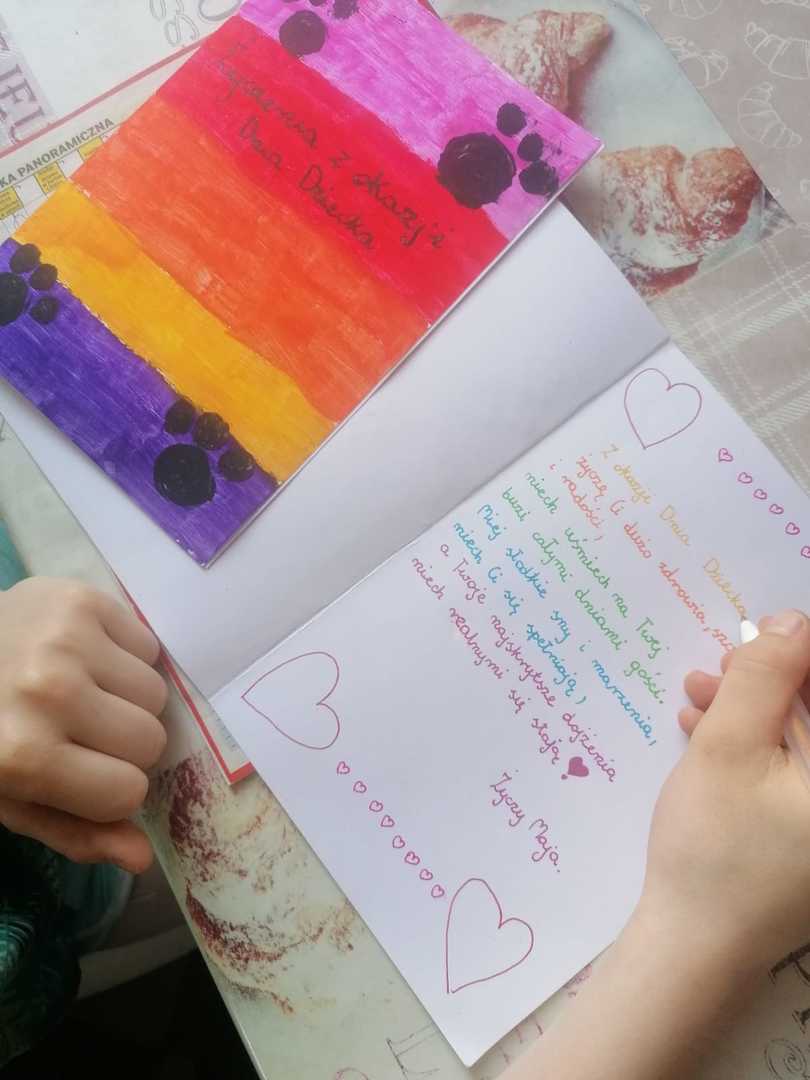 KA PANORAMICZNA
Życzenia z okazji
Dnia Dziecka
Z okazji Dnia Dziecka
życzę Ci dużo zdrowia,
i radości,
niech uśmiech na Twej
buzi całymi dniami gości.
Miej słodkie sny i marzenia,
niech Ci się spełniają,
a Twoje najskrytsze dojżenia
niech realnymi się stają!
Życzy Maja.